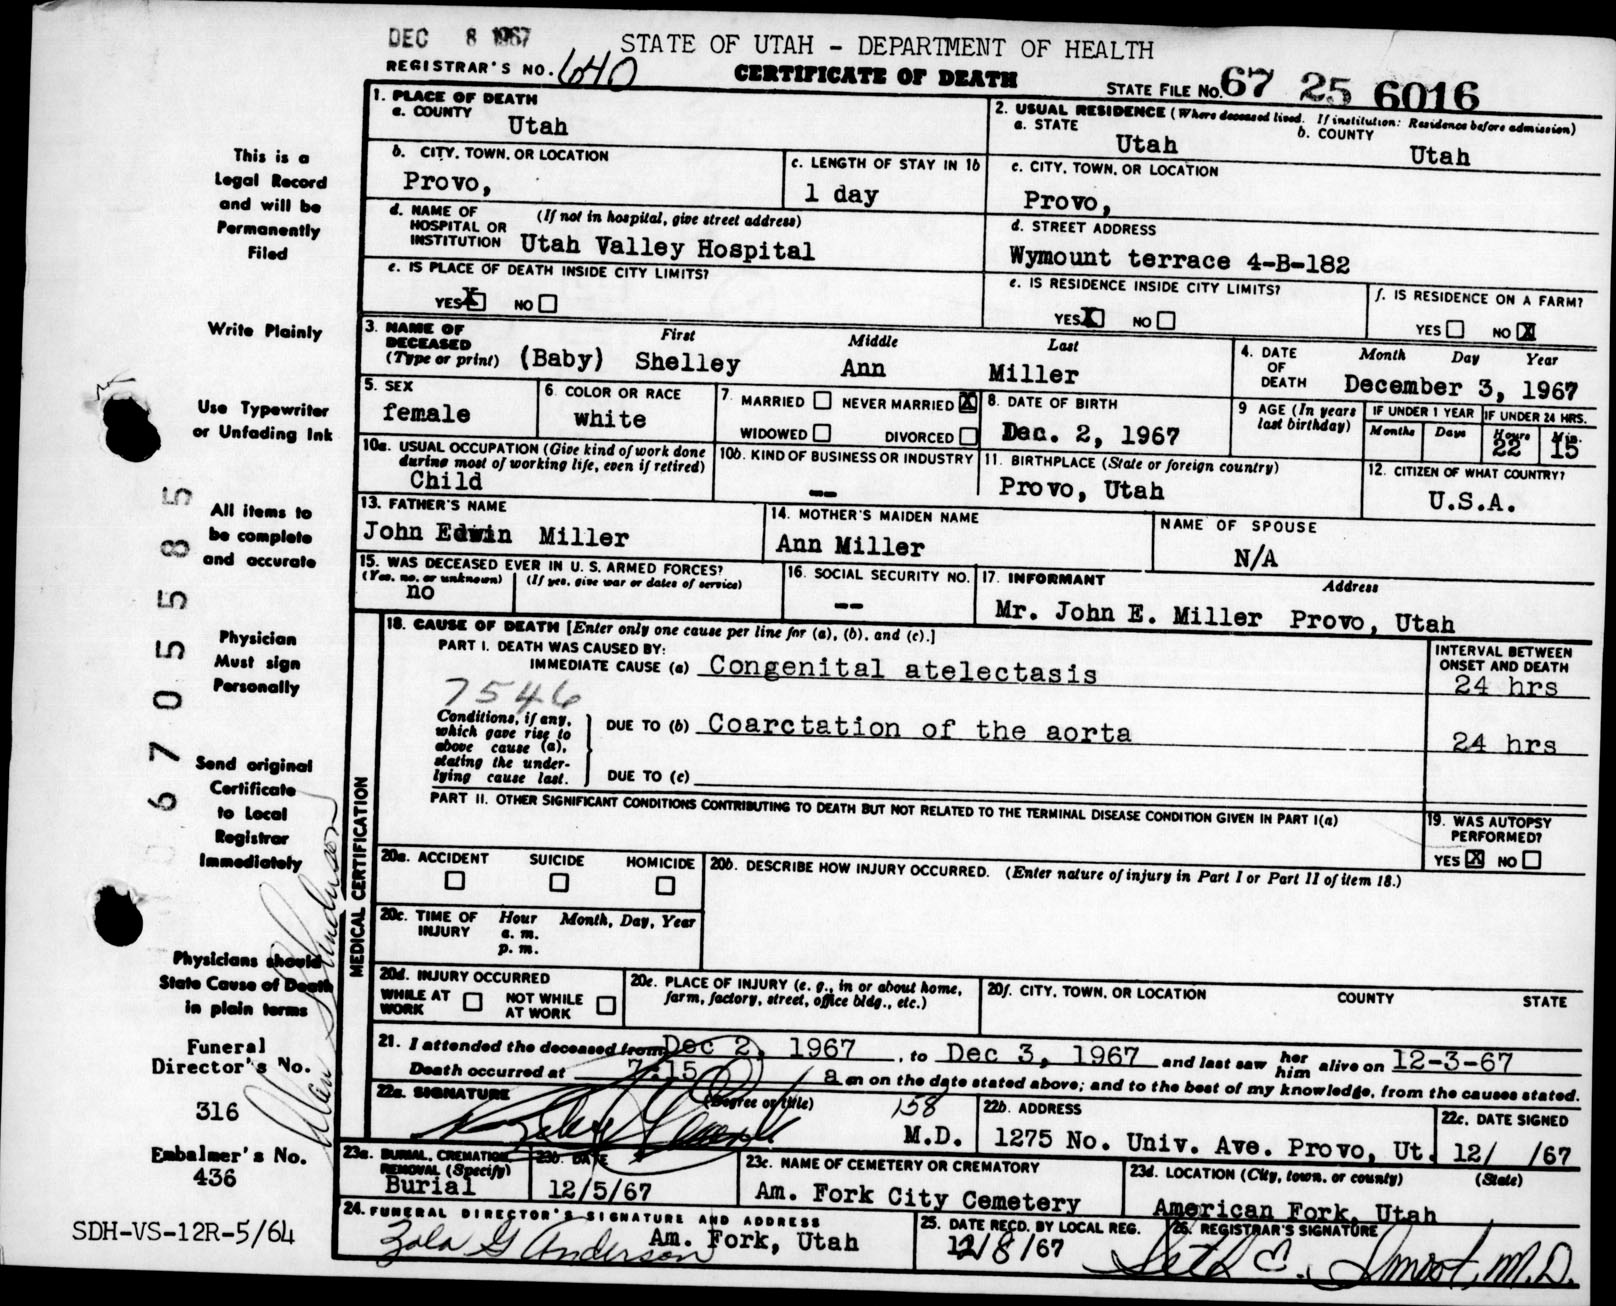 DEC 8 1967
STATE OF UTAH - DEPARTMENT OF HEALTH
REGISTRAR'S NO. 640
CERTIFICATE OF DEATH
STATE FILE NO. 67 25 6016
This is a
Legal Record
and will be
Permanently
Filed
Write Plainly
Use Typewriter
or Unfading Ink
All items to
be complete
and accurate
Physician
Must sign
Personally
Send original
Certificate
to Local
Registrar
Immediately
Physicians should
State Cause of Death
in plain terms
Funeral
Director's No.
316
Embalmer's No.
436
SDH-VS-12R-5/64
670555585
1. PLACE OF DEATH
a. COUNTY
Utah
2. USUAL RESIDENCE (Where deceased lived. If institution: Residence before admission)
a. STATE
Utah
b. COUNTY
Utah
b. CITY, TOWN, OR LOCATION
Provo,
c. LENGTH OF STAY IN 1b
1 day
c. CITY, TOWN, OR LOCATION
Provo,
d. NAME OF HOSPITAL OR INSTITUTION
(If not in hospital, give street address)
Utah Valley Hospital
d. STREET ADDRESS
Wymount terrace 4-B-182
e. IS PLACE OF DEATH INSIDE CITY LIMITS?
YES X NO
e. IS RESIDENCE INSIDE CITY LIMITS?
YES X NO
f. IS RESIDENCE ON A FARM?
YES NO X
3. NAME OF DECEASED
(Type or print)
First Middle Last
(Baby) Shelley Ann Miller
4. DATE OF DEATH
Month Day Year
December 3, 1967
5. SEX
female
6. COLOR OR RACE
white
7. MARRIED NEVER MARRIED X
WIDOWED DIVORCED
8. DATE OF BIRTH
Dec. 2, 1967
9 AGE (In years last birthday)
IF UNDER 1 YEAR
Months Days
IF UNDER 24 HRS.
Hours Min.
22 15
10a. USUAL OCCUPATION (Give kind of work done during most of working life, even if retired)
Child
10b. KIND OF BUSINESS OR INDUSTRY
--
11. BIRTHPLACE (State or foreign country)
Provo, Utah
12. CITIZEN OF WHAT COUNTRY?
U.S.A.
13. FATHER'S NAME
John Edwin Miller
14. MOTHER'S MAIDEN NAME
Ann Miller
NAME OF SPOUSE
N/A
15. WAS DECEASED EVER IN U. S. ARMED FORCES?
(Yes, no, or unknown) (If yes, give war or dates of service)
no
16. SOCIAL SECURITY NO.
--
17. INFORMANT Address
Mr. John E. Miller Provo, Utah
MEDICAL CERTIFICATION
18. CAUSE OF DEATH [Enter only one cause per line for (a), (b), and (c).]
PART I. DEATH WAS CAUSED BY:
IMMEDIATE CAUSE (a) Congenital atelectasis
INTERVAL BETWEEN ONSET AND DEATH
24 hrs
7546
Conditions, if any, which gave rise to above cause (a), stating the underlying cause last.
DUE TO (b) Coarctation of the aorta
24 hrs
DUE TO (c)
PART II. OTHER SIGNIFICANT CONDITIONS CONTRIBUTING TO DEATH BUT NOT RELATED TO THE TERMINAL DISEASE CONDITION GIVEN IN PART I(a)
19. WAS AUTOPSY PERFORMED?
YES X NO
20a. ACCIDENT SUICIDE HOMICIDE
20b. DESCRIBE HOW INJURY OCCURRED. (Enter nature of injury in Part I or Part II of item 18.)
20c. TIME OF INJURY
Hour Month, Day, Year
a. m.
p. m.
20d. INJURY OCCURRED
WHILE AT WORK NOT WHILE AT WORK
20e. PLACE OF INJURY (e. g., in or about home, farm, factory, street, office bldg., etc.)
20f. CITY, TOWN, OR LOCATION COUNTY STATE
21. I attended the deceased from Dec 2, 1967, to Dec 3, 1967 and last saw her him alive on 12-3-67
Death occurred at 7:15 a m on the date stated above; and to the best of my knowledge, from the causes stated.
22a. SIGNATURE
(Degree or title)
158
M.D.
22b. ADDRESS
1275 No. Univ. Ave. Provo, Ut.
22c. DATE SIGNED
12/ /67
23a. BURIAL, CREMATION, REMOVAL (Specify)
Burial
23b. DATE
12/5/67
23c. NAME OF CEMETERY OR CREMATORY
Am. Fork City Cemetery
23d. LOCATION (City, town, or county) (State)
American Fork, Utah
24. FUNERAL DIRECTOR'S SIGNATURE AND ADDRESS
Zola G Anderson Am. Fork, Utah
25. DATE RECD. BY LOCAL REG.
12/8/67
26. REGISTRAR'S SIGNATURE
Seth E. Smoot, M.D.